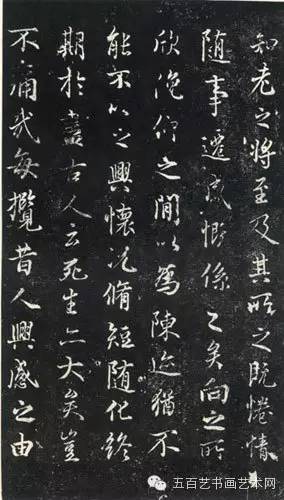 知老之將至及其所之既惓情
随事遷感慨係之矣向之所
欣俛仰之間以爲陳迹猶不
能不以之興懷况脩短随化終
期於盡古人云死生亦大矣豈
不痛哉每攬昔人興感之由
五百艺书画艺术网